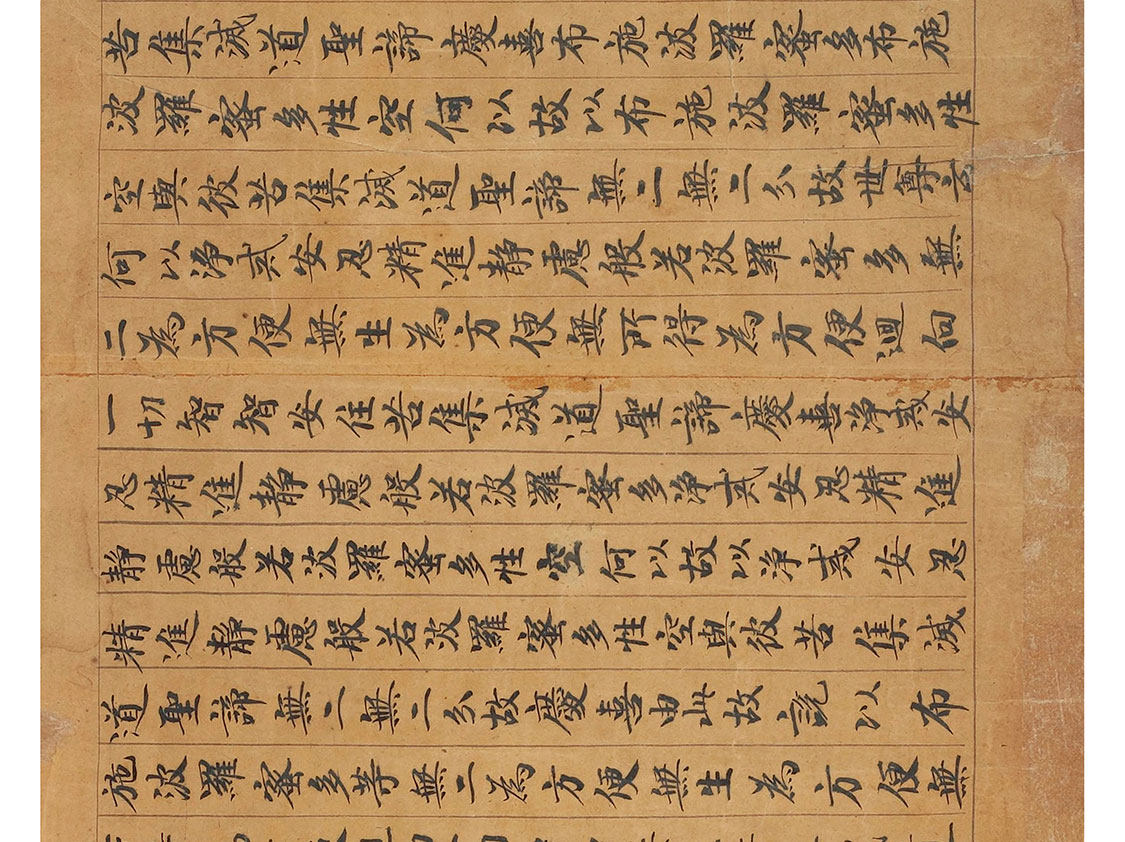 苦集滅道聖諦慶喜布施波羅蜜多布施
波羅蜜多性空何以故以布施波羅蜜多性
空與彼苦集滅道聖諦無二無二分故世尊云
何以淨戒安忍精進靜慮般若波羅蜜多無
二為方便無生為方便無所得為方便迴向
一切智智安住苦集滅道聖諦慶喜淨戒安
忍精進靜慮般若波羅蜜多淨戒安忍精進
靜慮般若波羅蜜多性空何以故以淨戒安忍
精進靜慮般若波羅蜜多性空與彼苦集滅
道聖諦無二無二分故慶喜由此故說以布
施波羅蜜多等無二為方便無生為方便無